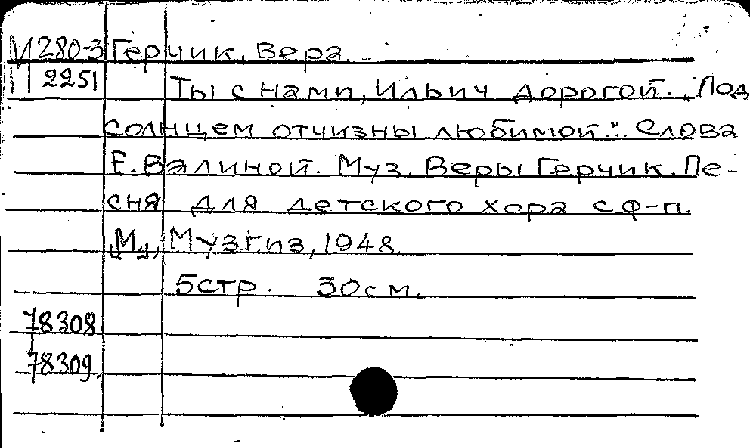 М 280-3 Герчик, Вера
2251 Ты с нами, Ильич дорогой. „Под
солнцем отчизны любимой.". Слова
Е. Валиной. Муз. Веры Герчик. Пе-
сня для детского хора с ф-п.
М., Музгиз, 1948
5стр. 30см.
78308
78309.